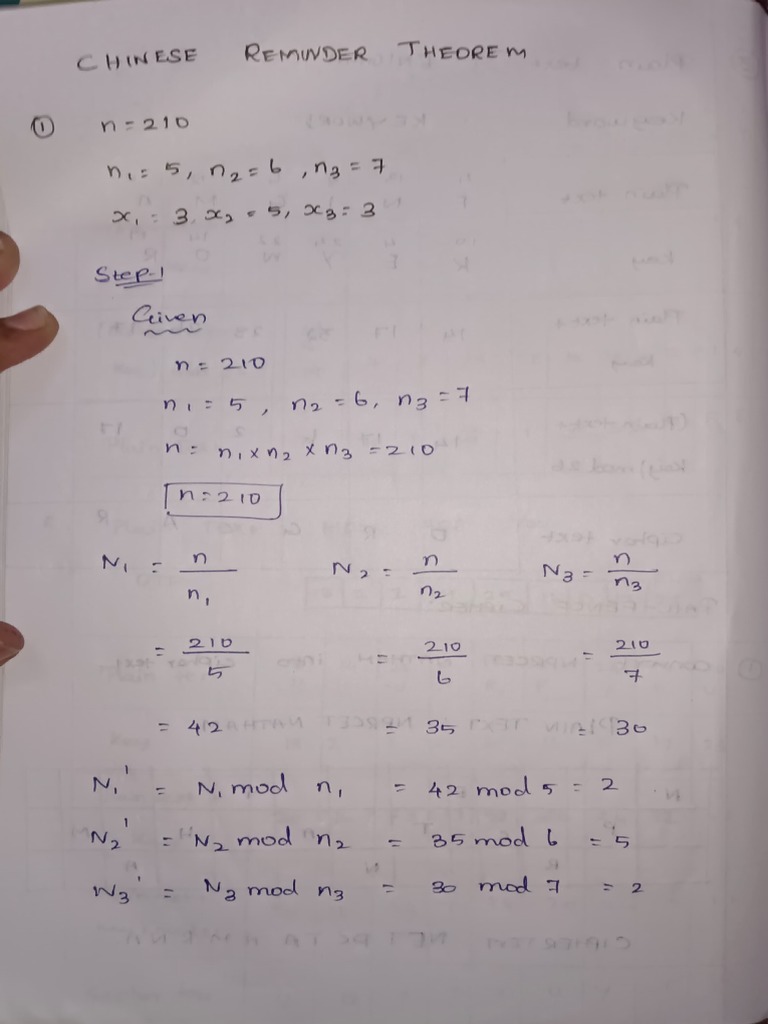 CHINESE REMINDER THEOREM
① n = 210
n₁ = 5, n₂ = 6, n₃ = 7
x₁ = 3, x₂ = 5, x₃ = 3
Step-1
Given
n = 210
n₁ = 5, n₂ = 6, n₃ = 7
n = n₁ × n₂ × n₃ = 210
n = 210
N₁ = n/n₁ N₂ = n/n₂ N₃ = n/n₃
= 210/5 = 210/6 = 210/7
= 42 = 35 = 30
N₁' = N₁ mod n₁ = 42 mod 5 = 2
N₂' = N₂ mod n₂ = 35 mod 6 = 5
N₃' = N₃ mod n₃ = 30 mod 7 = 2